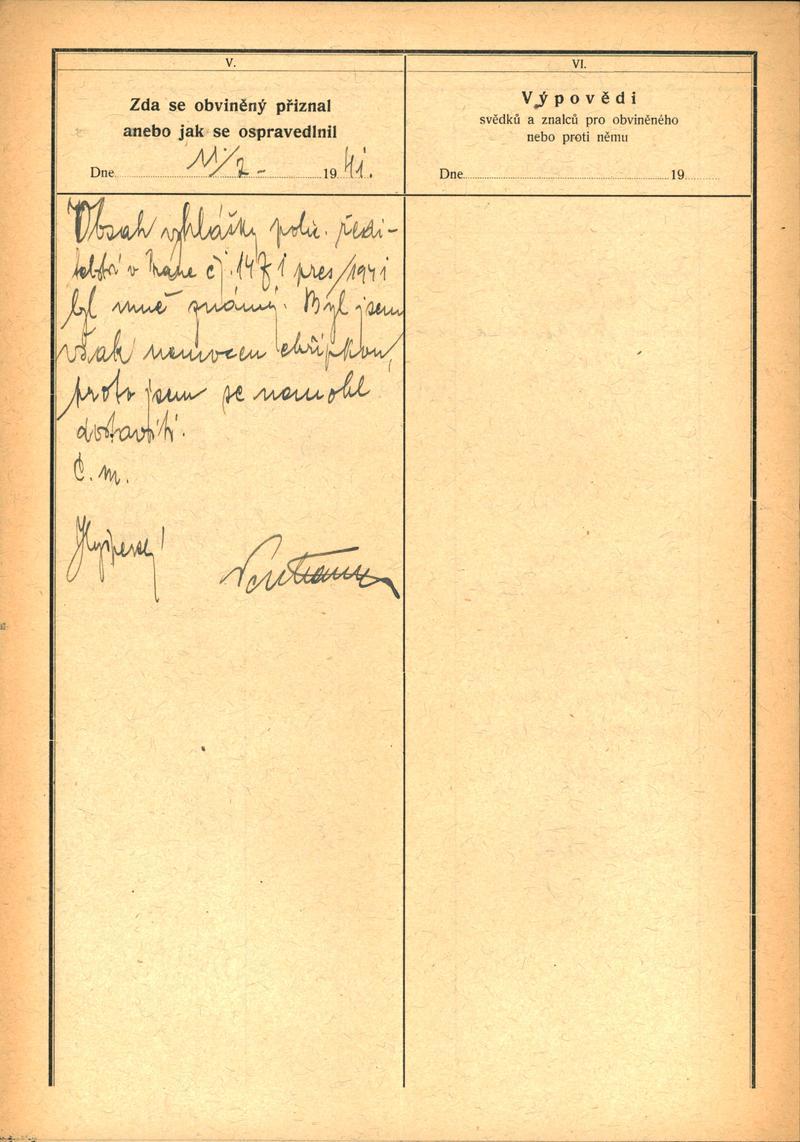 V.
Zda se obviněný přiznal
anebo jak se ospravedlnil
Dne 11/2 - 1941.
Obsah vyhlášky polic. ředi-
telství v Praze čj. 1471 pres/1941
byl mně známý. Byl jsem
však nemocen chřipkou,
proto jsem se nemohl
dostaviti.
Č. m.
VI.
Výpovědi
svědků a znalců pro obviněného
nebo proti němu
Dne 19